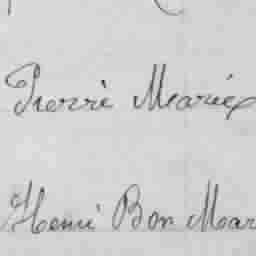 Pierre Marie
Henri Bon Mar